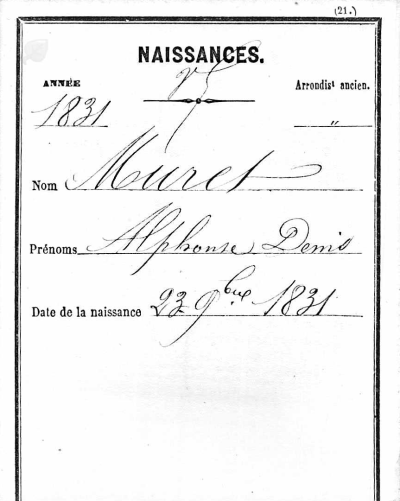 (21.)
NAISSANCES.
ANNÉE
Arrondist ancien.
1831
"
Nom Muret
Prénoms Alphonse Denis
Date de la naissance 23 9bre 1831